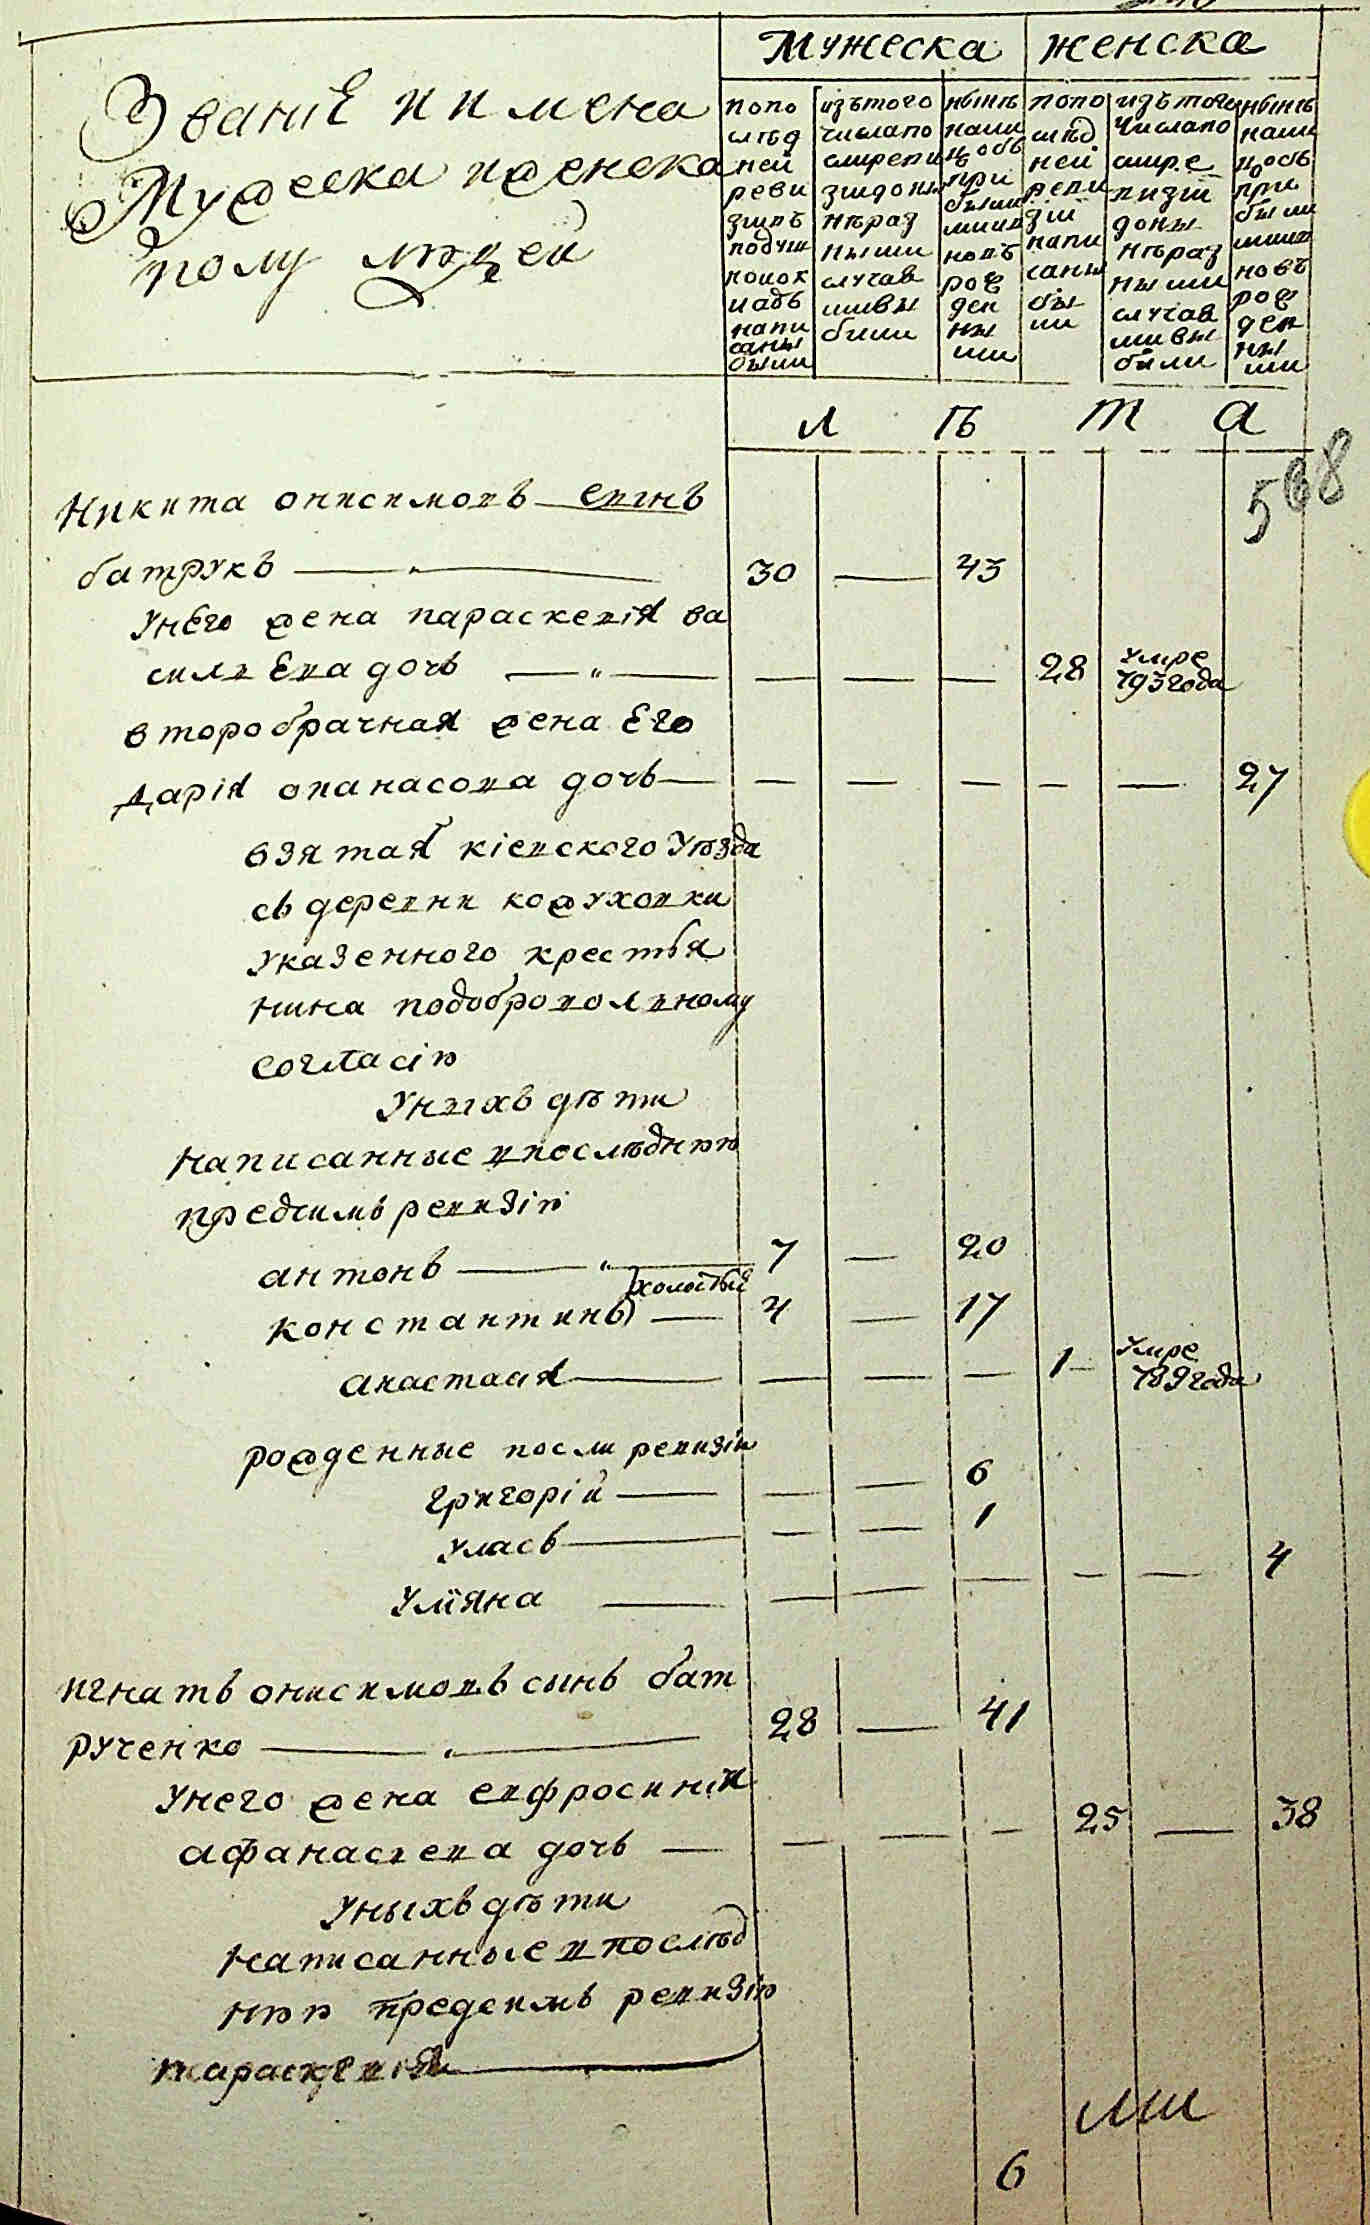 Мужеска женска
Званіе и имена
Мужеска и женска
полу людей
попо слѣд ней реви зіи въ подуш ной окладъ напи саны были
изътого числапо слирепи зіидоны нѣраз ными случая мивы были
нынѣ нали цо объ при былими иновъ рож ден ны ми
попо слѣд ней реви зіи напи саны бы ли
изътого числапо слире визіи доны нѣраз ными случая мивы были
нынѣ нали цооъ при были мии новъ рож ден ны ми
л ѣ т а
568
Никита онисимовъ синъ
батрукъ 30 43
Унего жена параскевія ва
сильева дочь 28 умре 793года
второбрачная жена его
дарія опанасова дочь 27
взятая кіевского уѣзда
съ деревни кожуховки
Указенного крестья
нина подобровольному
согласію
Унихъ дѣти
написанные впослѣднюю
предсимъ ревизію
антонъ 7 20
константинъ холостый 4 17
анастасія 1 умре 789года
рожденные посли ревизіи
григорій 6
Уласъ 1
Уліяна 4
игнатъ онисимовъ сынъ бат
рученко 28 41
Унего жена евфросинія
афанасиева дочь 25 38
Уныхъ дѣти
написанные впослѣд
нюю предсимъ ревизію
параскевія
6